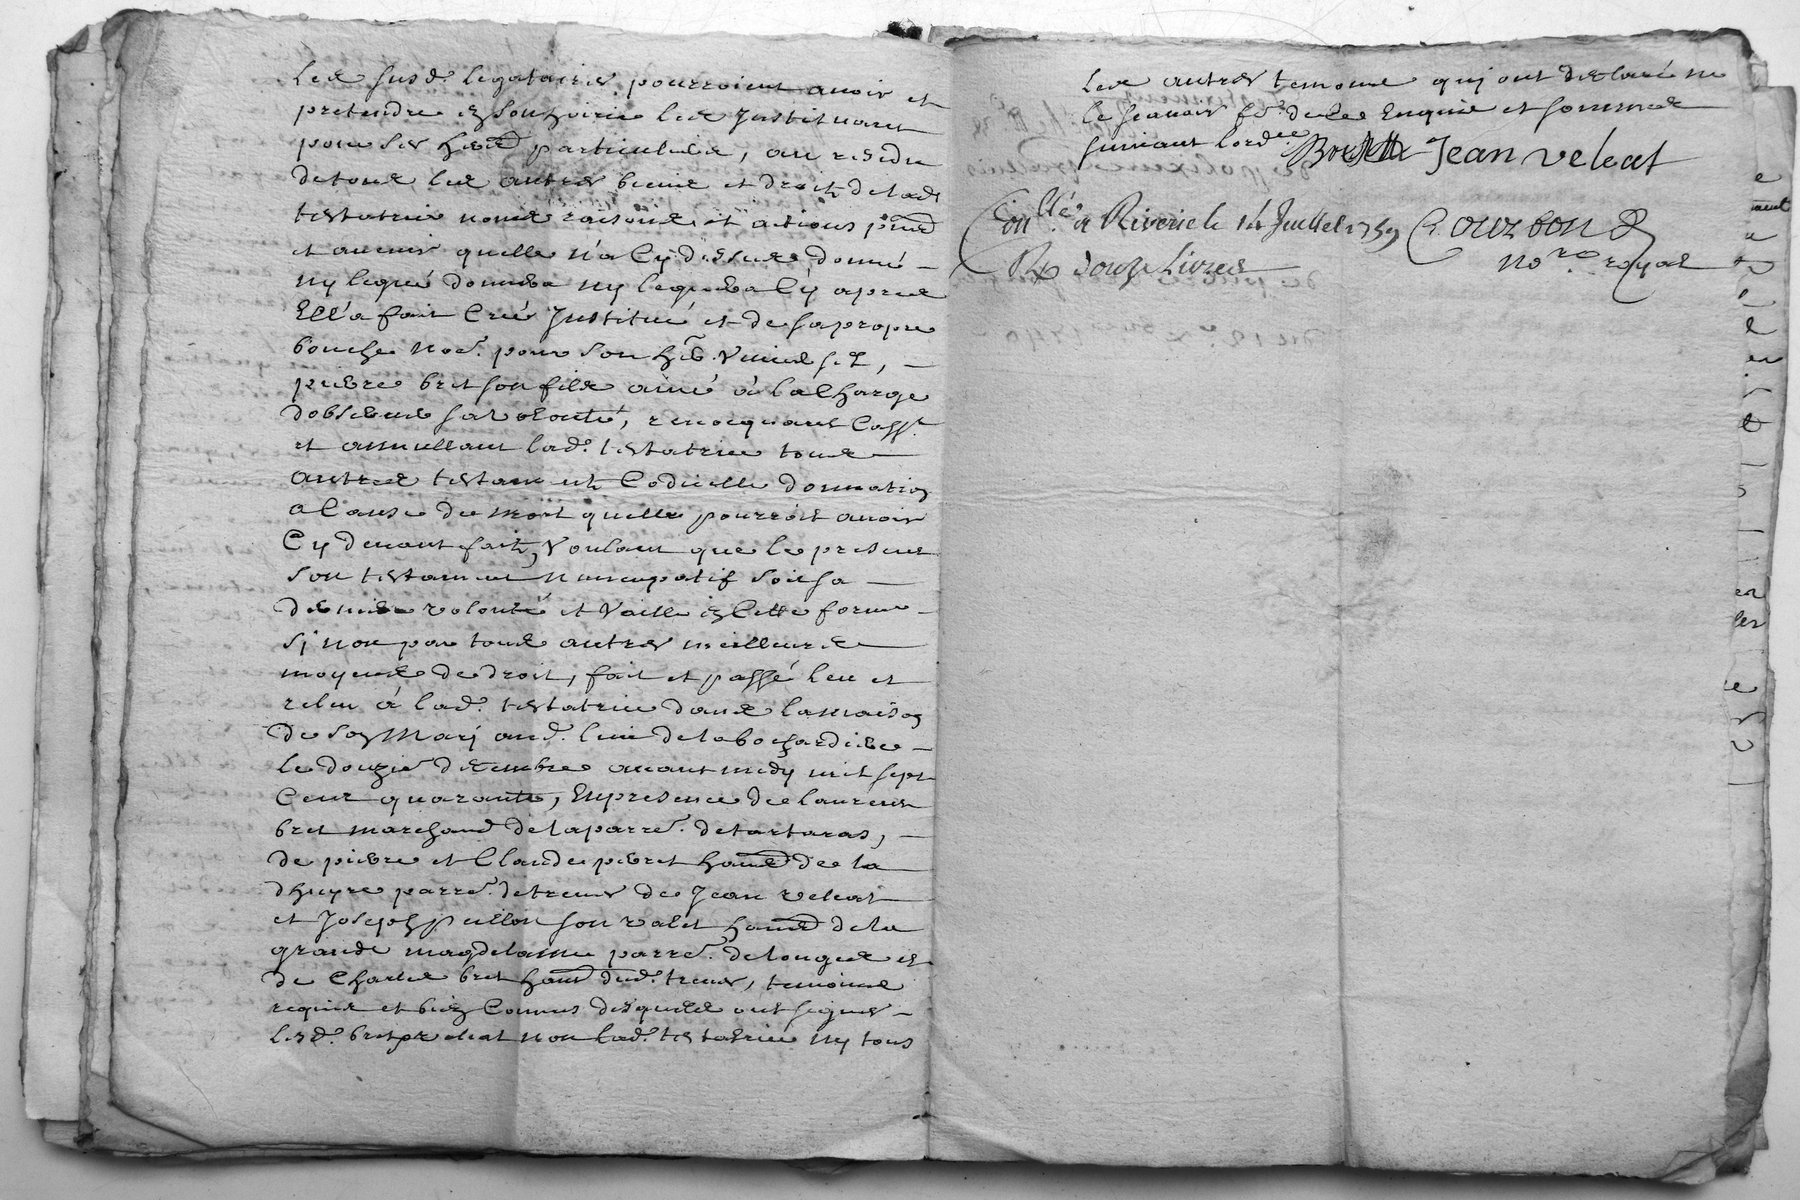 Les susd. legataires pourroient avoir et
pretendre en son hoirie les Instituant
pour ses herers particuliers, au residu
de tous les autres biens et droits de lad.
testatrice noms raisons et actions pnts
et avenir quelle n'a Cy dessus donné
ny legué donnera ny leguera Cy apres
Elle a fait Créé Institué et de sa propre
bouche noé. pour son her. universel,
pierre bret son fils ainé à la Charge
d'observer sa volonté, revocquant Cass.t
et annullant lad. testatrice tous
autres testaments Codicille donnation
a Cause de mort quelle pourroit avoir
Cy devant fait, Voulant que le present
son testament nuncupatif soit sa
derniere volonté et Vaille en Cette forme
si non par tous autres meilleurs
moyens de droit, fait et passé leu et
releu à lad. testatrice dans la maison
de son Mari aud. lieu de la bochardiere
le douzie decembre avant midy mil sept
Cent quarante, En presence de laurens
bret marchand de la parre. de tartaras,
de pierre et Claude pivret habts de la
dhuyre parre. de treves de Jean veleat
et Joseph pullon son valet habts de la
grande magdelaine parre. de longes et
de Charles bret habt dud. treves, temoins
requis et bien Connus desquels ont signé
lesd. bret et veleat non lad. testatrice ny tous
Les autres temoins qui ont declaré ne
le scavoir fe. de ce Enquis et sommés
suivant lord.ce Jean veleat
Con.llé a Riverie le 14 Juillet 1759 Gourdon
R. douze Livres no.re royal